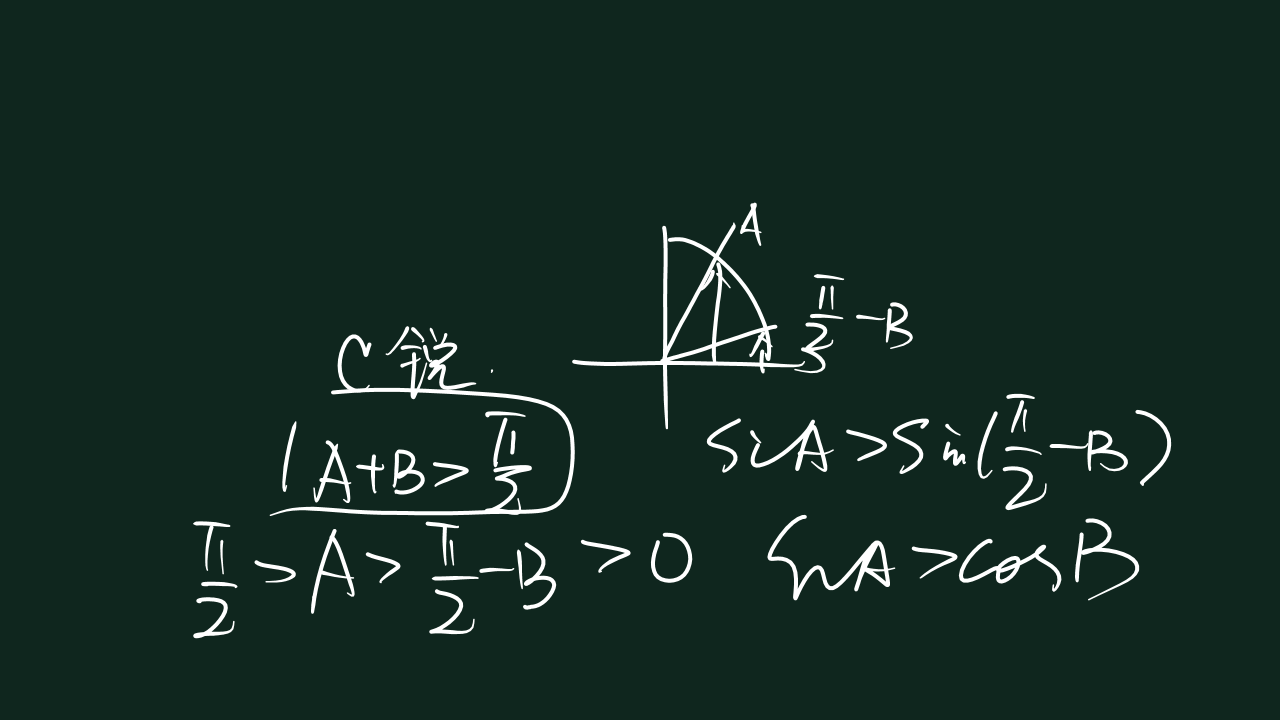 A
π/2 -B
C锐.
A+B>π/2
sinA>sin(π/2-B)
π/2>A>π/2-B>0
sinA>cosB